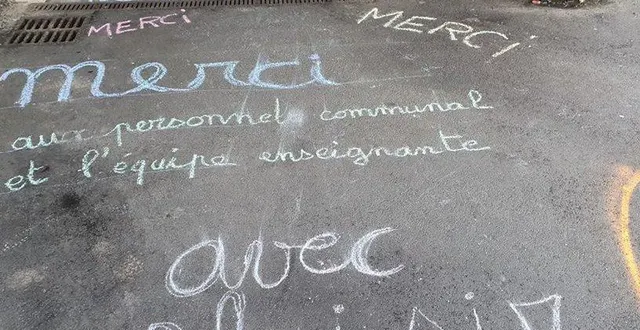 MERCi
MERCi
merci
aux personnel communal
et l'équipe enseignante
avec